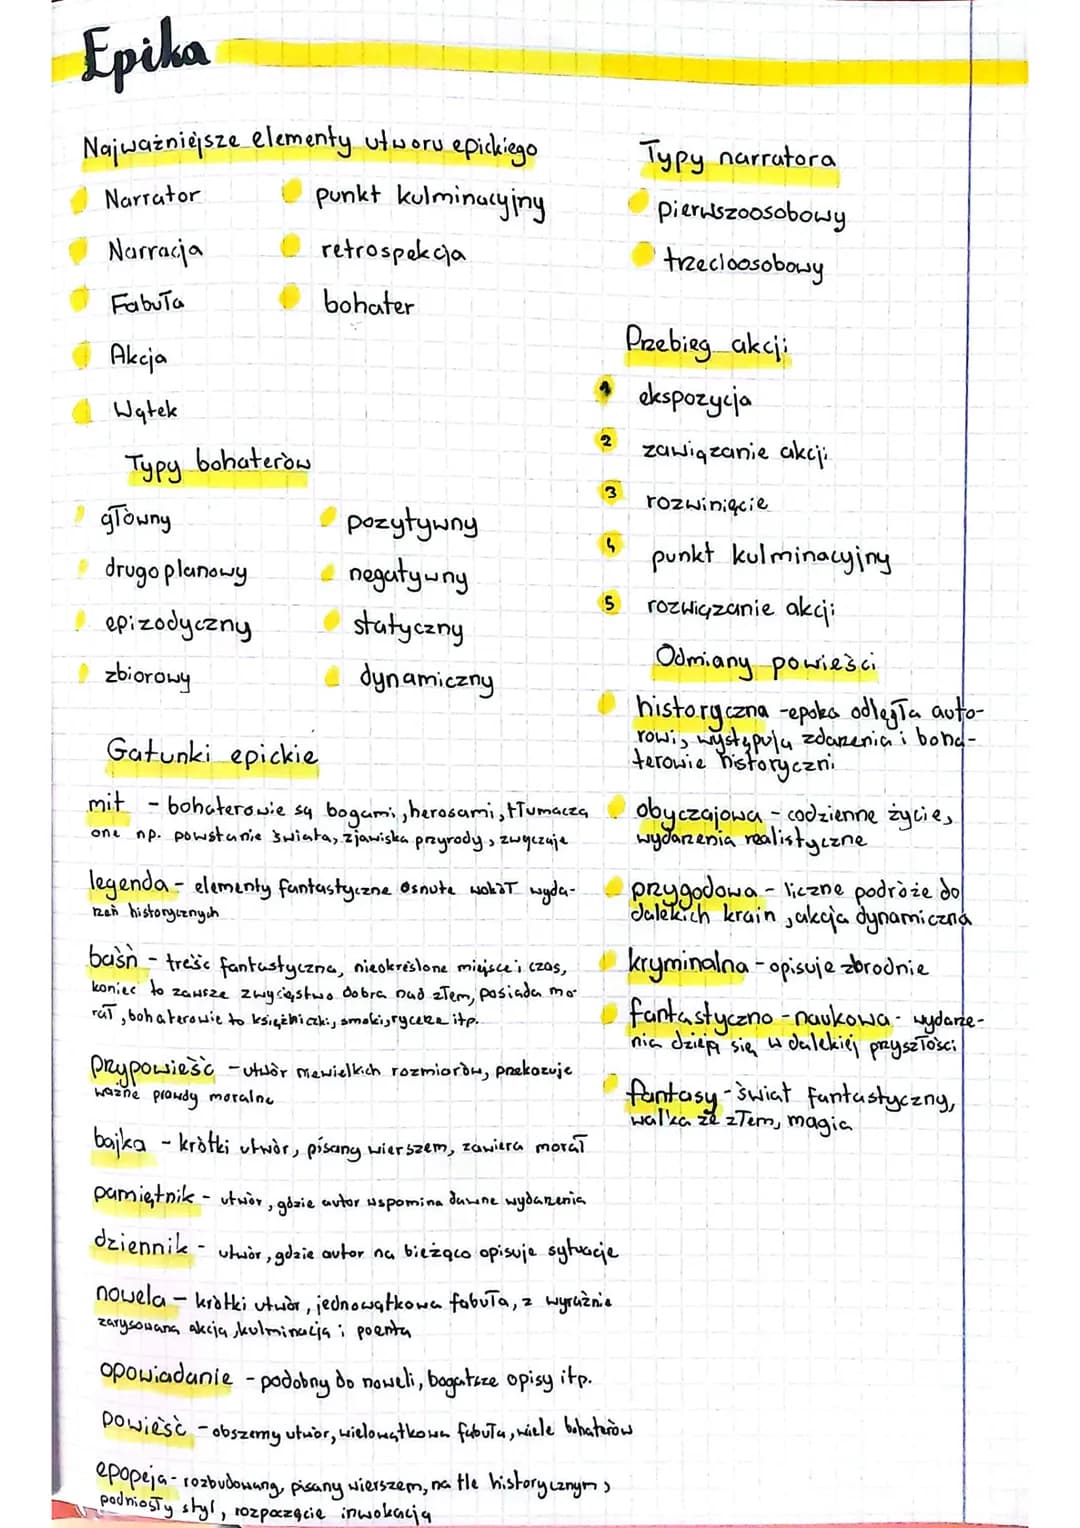 Epika
Najważniejsze elementy utworu epickiego
Narrator
Narracja
Fabuła
Akcja
Wątek
punkt kulminacyjny
retrospekcja
bohater
Typy bohaterów
główny
drugoplanowy
epizodyczny
zbiorowy
pozytywny
negatywny
statyczny
dynamiczny
Gatunki epickie
mit - bohaterowie są bogami, herosami, tłumaczą
one np. powstanie świata, zjawiska przyrody, zwyczaje
legenda - elementy fantastyczne osnute wokół wyda-
rzeń historycznych
baśń - treść fantastyczna, nieokreślone miejsce i czas,
koniec to zawsze zwycięstwo dobra nad złem, posiada mo-
rał, bohaterowie to księżniczki, smoki, rycerze itp.
przypowieść - utwór niewielkich rozmiarów, przekazuje
ważne prawdy moralne
bajka - krótki utwór, pisany wierszem, zawiera morał
pamiętnik - utwór, gdzie autor wspomina dawne wydarzenia
dziennik - utwór, gdzie autor na bieżąco opisuje sytuacje
nowela - krótki utwór, jednowątkowa fabuła, z wyraźnie
zarysowaną akcją, kulminacją i poentą
opowiadanie - podobny do noweli, bogatsze opisy itp.
powieść - obszerny utwór, wielowątkowa fabuła, wiele bohaterów
epopeja - rozbudowany, pisany wierszem, na tle historycznym,
podniosły styl, rozpoczęcie inwokacją
Typy narratora
pierwszoosobowy
trzecioosobowy
Przebieg akcji
1 ekspozycja
2 zawiązanie akcji
3 rozwinięcie
4 punkt kulminacyjny
5 rozwiązanie akcji
Odmiany powieści
historyczna - epoka odległa auto-
rowi, występują zdarzenia i boha-
terowie historyczni
obyczajowa - codzienne życie,
wydarzenia realistyczne
przygodowa - liczne podróże do
dalekich krain, akcja dynamiczna
kryminalna - opisuje zbrodnie
fantastyczno - naukowa - wydarze-
nia dzieją się w dalekiej przyszłości
fantasy - świat fantastyczny,
walka ze złem, magia